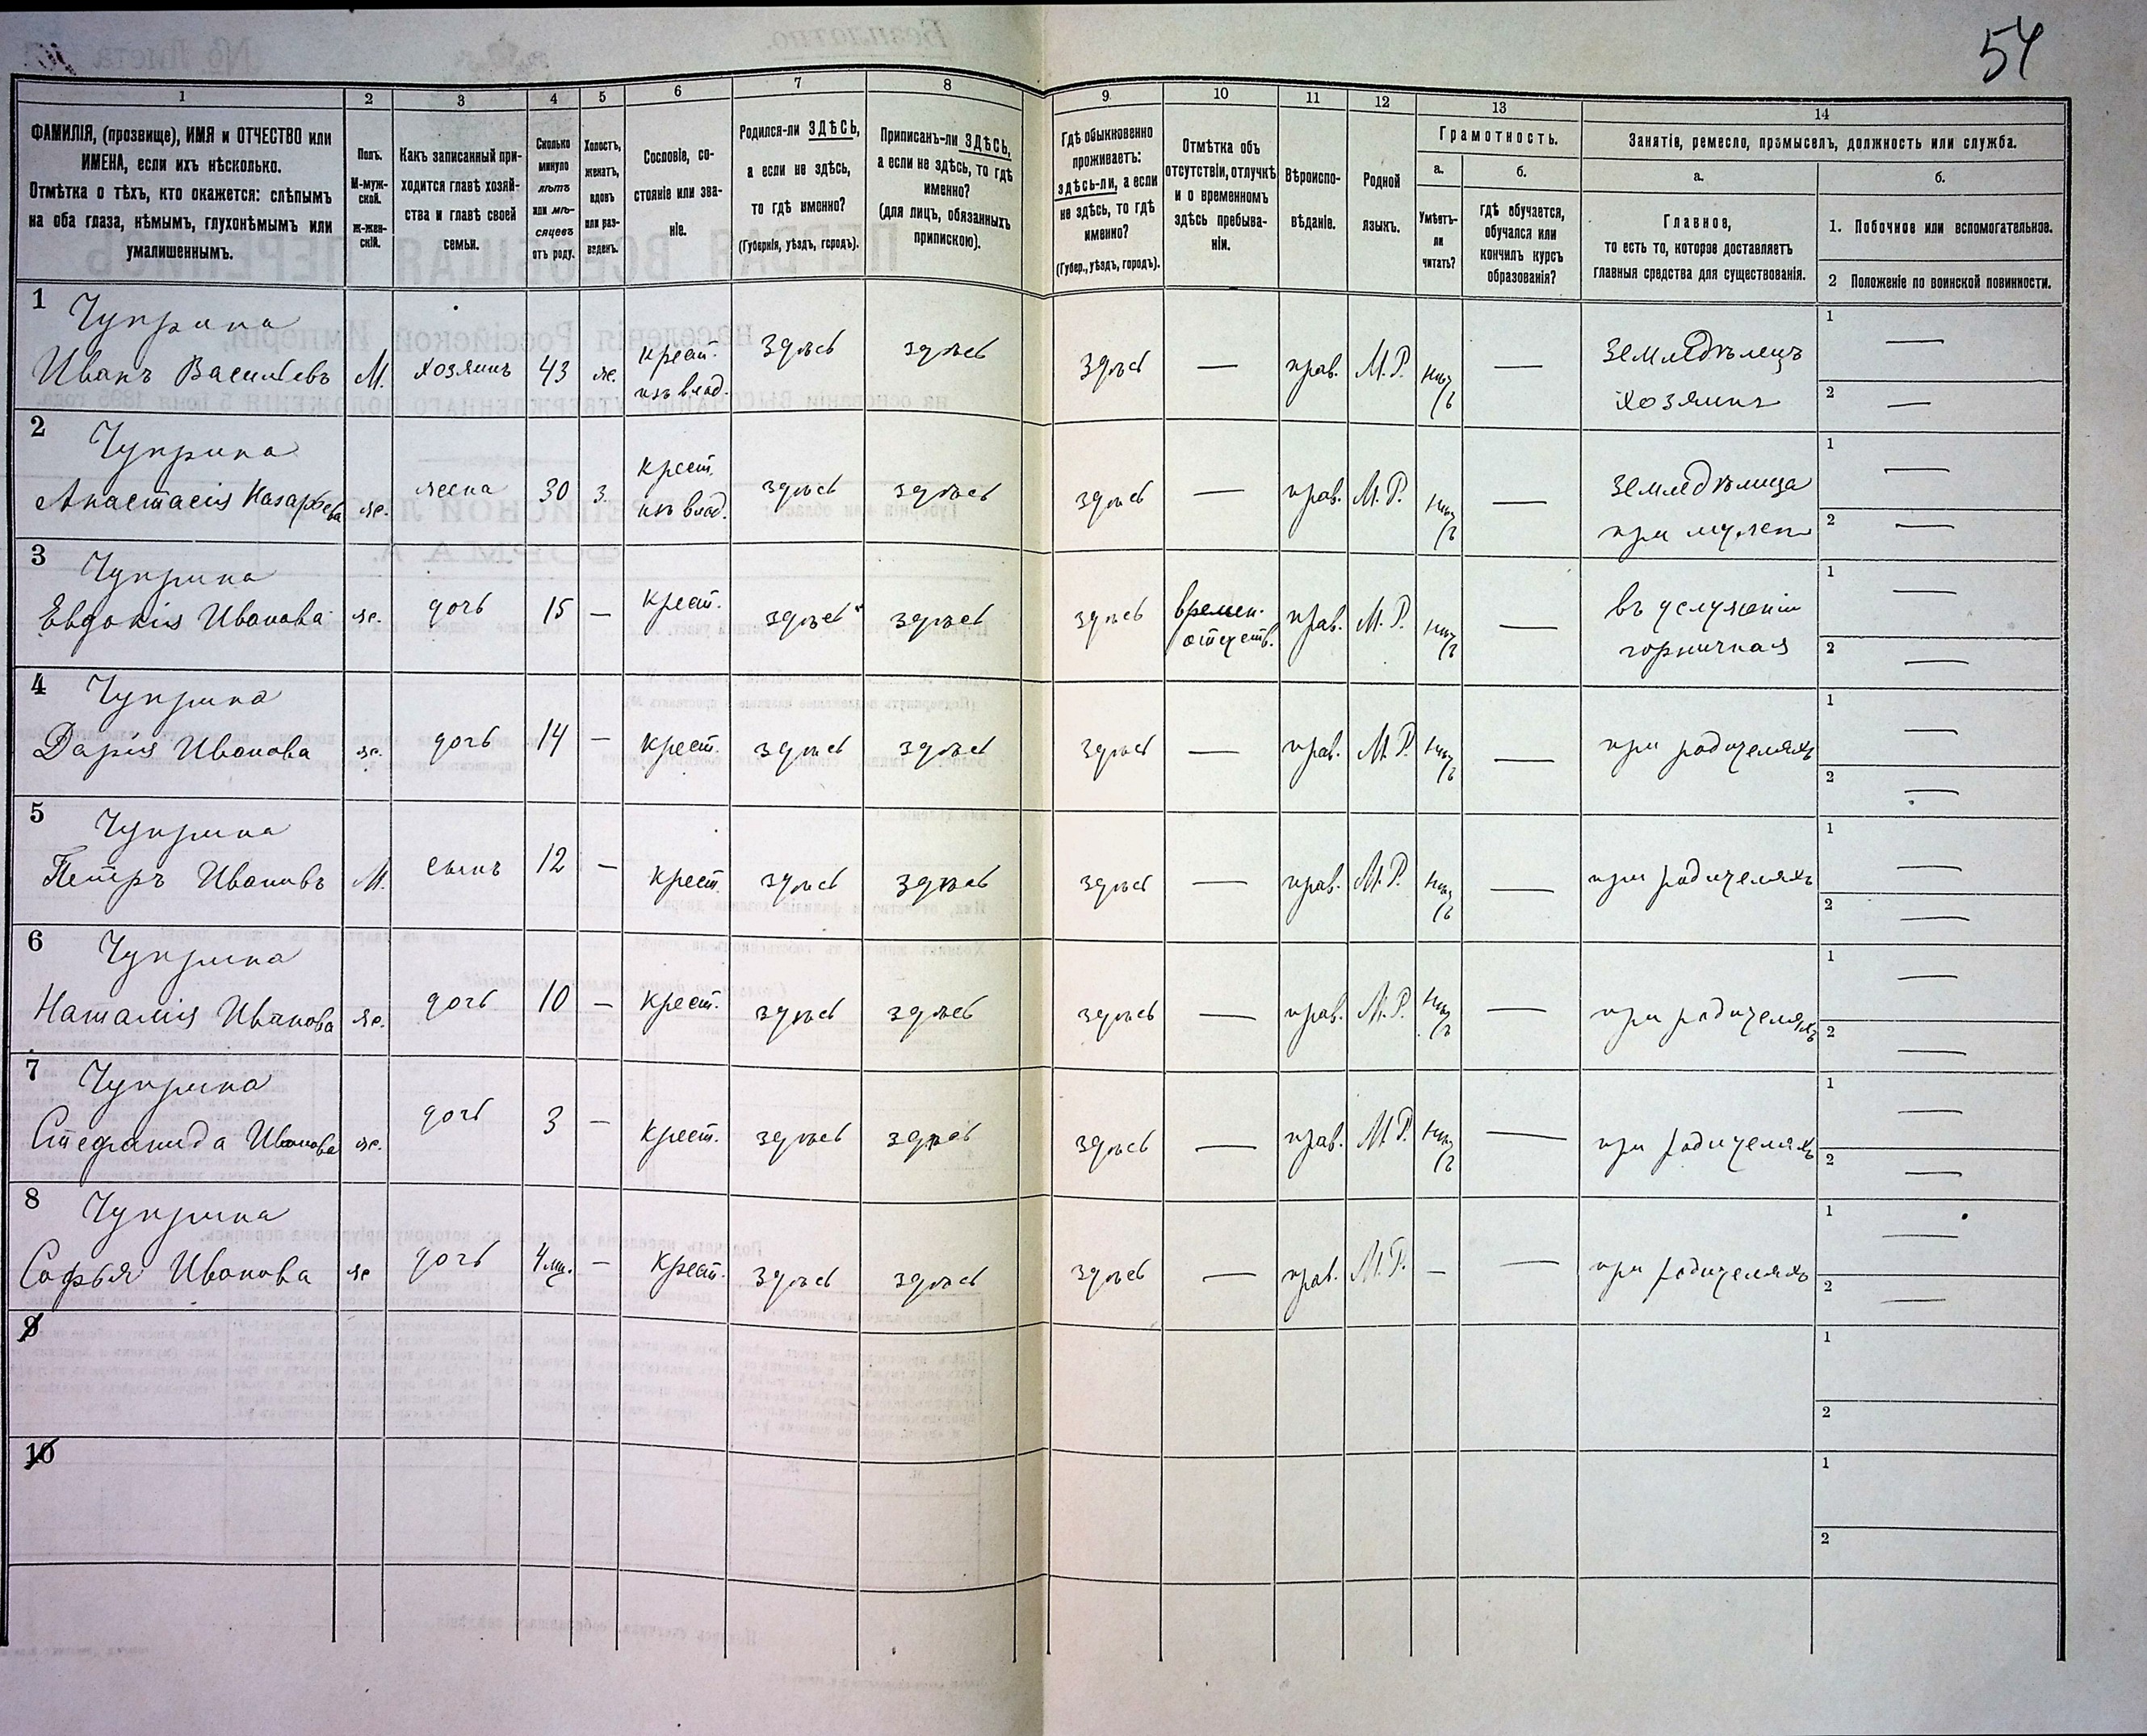 54
1 2 3 4 5 6 7 8 9 10 11 12 13 14
ФАМИЛІЯ, (прозвище), ИМЯ и ОТЧЕСТВО или
ИМЕНА, если ихъ нѣсколько.
Отмѣтка о тѣхъ, кто окажется: слѣпымъ
на оба глаза, нѣмымъ, глухонѣмымъ или
умалишеннымъ.
Полъ.
М-муж-
ской.
Ж-жен-
скій.
Какъ записанный при-
ходится главѣ хозяй-
ства и главѣ своей
семьи.
Сколько
минуло
лѣтъ
или мѣ-
сяцевъ
отъ роду.
Холостъ,
женатъ,
вдовъ
или раз-
веденъ.
Сословіе, со-
стояніе или зва-
ніе.
Родился-ли ЗДѢСЬ,
а если не здѣсь,
то гдѣ именно?
(Губернія, уѣздъ, городъ).
Приписанъ-ли ЗДѢСЬ,
а если не здѣсь, то гдѣ
именно?
(для лицъ, обязанныхъ
припискою).
Гдѣ обыкновенно
проживаетъ:
здѣсь-ли, а если
не здѣсь, то гдѣ
именно?
(Губер., уѣздъ, городъ).
Отмѣтка объ
отсутствіи, отлучкѣ
и о временномъ
здѣсь пребыва-
ніи.
Вѣроиспо-
вѣданіе.
Родной
языкъ.
Грамотность.
а.
Умѣетъ-
ли
читать?
б.
гдѣ обучается,
обучался или
кончилъ курсъ
образованія?
Занятія, ремесло, промыселъ, должность или служба.
а.
Главное,
то есть то, которое доставляетъ
главныя средства для существованія.
б.
1. Побочное или вспомогательное.
2 Положеніе по воинской повинности.
1 Чуприна
Иванъ Васильевъ М. хозяинъ 43 ж. крест. изъ влад. здѣсь здѣсь здѣсь — прав. М.Р. нѣтъ — земледѣлецъ хозяинъ 1 — 2 —
2 Чуприна
Анастасія Назарьева ж. жена 30 з. крест. изъ влад. здѣсь здѣсь здѣсь — прав. М.Р. нѣтъ — земледѣлица при мужѣ 1 — 2 —
3 Чуприна
Евдокія Иванова ж. дочь 15 — крест. здѣсь здѣсь здѣсь времен. отсутств. прав. М.Р. нѣтъ — въ услуженіи горничная 1 — 2 —
4 Чуприна
Дарія Иванова ж. дочь 14 — крест. здѣсь здѣсь здѣсь — прав. М.Р. нѣтъ — при родителяхъ 1 — 2 —
5 Чуприна
Петръ Ивановъ М. сынъ 12 — крест. здѣсь здѣсь здѣсь — прав. М.Р. нѣтъ — при родителяхъ 1 — 2 —
6 Чуприна
Наталія Иванова ж. дочь 10 — крест. здѣсь здѣсь здѣсь — прав. М.Р. нѣтъ — при родителяхъ 1 — 2 —
7 Чуприна
Стефанида Иванова ж. дочь 3 — крест. здѣсь здѣсь здѣсь — прав. М.Р. нѣтъ — при родителяхъ 1 — 2 —
8 Чуприна
Софья Иванова ж дочь 4 мѣ. — крест. здѣсь здѣсь здѣсь — прав. М.Р. — — при родителяхъ 1 — 2 —
9 1 2
10 1 2